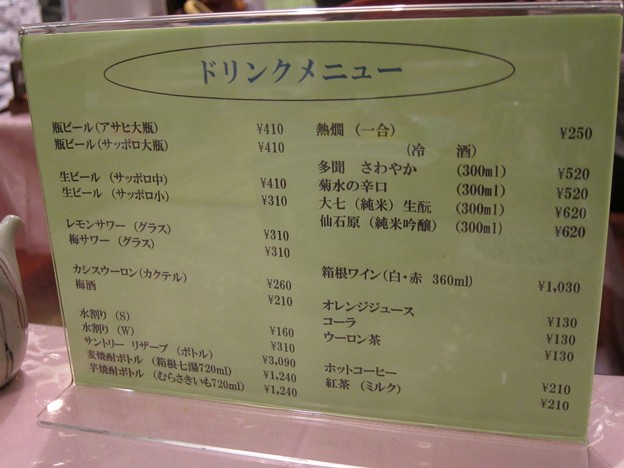 ドリンクメニュー
瓶ビール(アサヒ大瓶) ¥410
瓶ビール(サッポロ大瓶) ¥410
生ビール (サッポロ中) ¥410
生ビール (サッポロ小) ¥310
レモンサワー (グラス) ¥310
梅サワー (グラス) ¥310
カシスウーロン(カクテル) ¥260
梅酒 ¥210
水割り (S) ¥160
水割り (W) ¥310
サントリー リザーブ (ボトル) ¥3,090
麦焼酎ボトル (箱根七湯720ml) ¥1,240
芋焼酎ボトル (むらさきいも720ml) ¥1,240
熱燗 (一合) ¥250
(冷 酒)
多聞 さわやか (300ml) ¥520
菊水の辛口 (300ml) ¥520
大七 (純米) 生酛 (300ml) ¥620
仙石原 (純米吟醸) (300ml) ¥620
箱根ワイン (白・赤 360ml) ¥1,030
オレンジジュース ¥130
コーラ ¥130
ウーロン茶 ¥130
ホットコーヒー ¥210
紅茶 (ミルク) ¥210